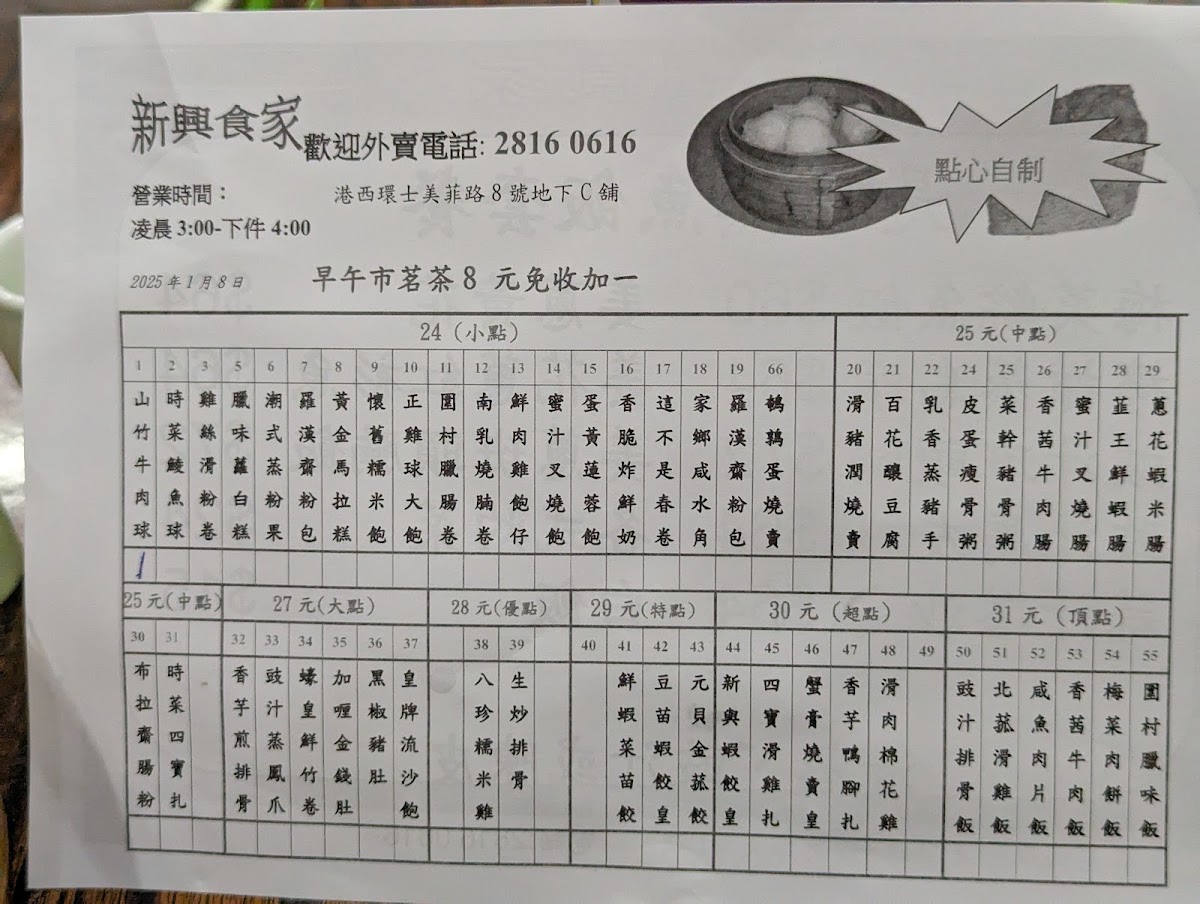 新興食家
歡迎外賣電話: 2816 0616
點心自制
營業時間：
港西環士美菲路 8 號地下 C 舖
凌晨 3:00-下件 4:00
2025 年 1 月 8 日
早午市茗茶 8 元免收加一
24 (小點)
1 山竹牛肉球
2 時菜鯪魚球
3 雞絲滑粉卷
5 臘味蘿白糕
6 潮式蒸粉果
7 羅漢齋粉包
8 黃金馬拉糕
9 懷舊糯米飽
10 正雞球大飽
11 圍村臘腸卷
12 南乳燒腩卷
13 鮮肉雞飽仔
14 蜜汁叉燒飽
15 蛋黃蓮蓉飽
16 香脆炸鮮奶
17 這不是春卷
18 家鄉咸水角
19 羅漢齋粉包
66 鵪鶉蛋燒賣
25 元(中點)
20 滑豬潤燒賣
21 百花釀豆腐
22 乳香蒸豬手
24 皮蛋瘦骨粥
25 菜幹豬骨粥
26 香茜牛肉腸
27 蜜汁叉燒腸
28 韮王鮮蝦腸
29 蔥花蝦米腸
1
25 元(中點)
30 布拉齋腸粉
31 時菜四寶扎
27 元(大點)
32 香芋煎排骨
33 豉汁蒸鳳爪
34 蠔皇鮮竹卷
35 加喱金錢肚
36 黑椒豬肚
37 皇牌流沙飽
28 元(優點)
38 八珍糯米雞
39 生炒排骨
29 元(特點)
40
41 鮮蝦菜苗餃
42 豆苗蝦餃皇
43 元貝金菇餃
30 元 (超點)
44 新興蝦餃皇
45 四寶滑雞扎
46 蟹膏燒賣皇
47 香芋鴨腳扎
48 滑肉棉花雞
49
31 元 (頂點)
50 豉汁排骨飯
51 北菰滑雞飯
52 咸魚肉片飯
53 香茜牛肉飯
54 梅菜肉餅飯
55 圍村臘味飯